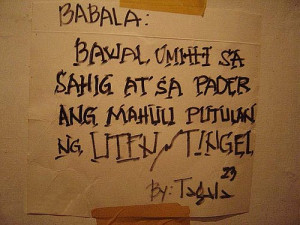 BABALA:
BAWAL UMIHI SA
SAHIG AT SA PADER
ANG MAHULI PUTULAN
NG UTEN / TINGEL
23
By: Tagala